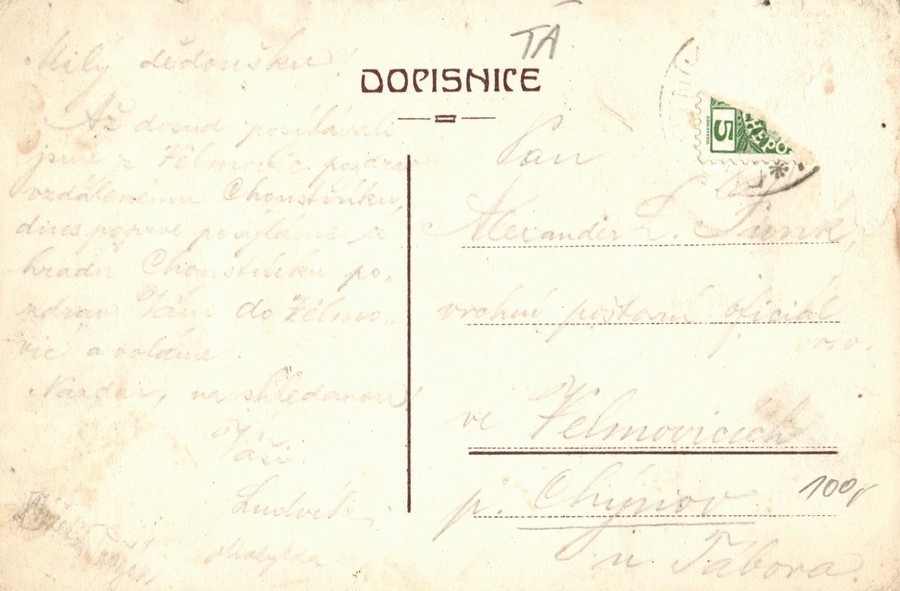 TÁ
DOPISNICE
Milý dědoušku!
Až dosud posílávali
jsme z Velmovic pozdrav
vzdálenému Choustníku,
dnes poprvé posíláme z
hradu Choustníku po-
zdrav Vám do Velmo-
vic a voláme.
Nazdar, na shledanou!
Vaši
Ludvík
Pan
Alexander L. Punk,
vrchní poštovní oficiál
v.v.
ve Velmovicích
p. Chýnov
u Tábora.
5
100,